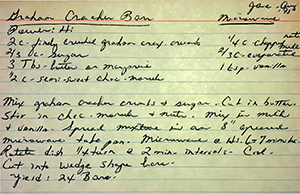 Graham Cracker Bars Microwave
Power: Hi
2 c. finely crushed graham crax. crumbs 1/4 c chopped nuts
2/3 c. sugar 2/3 c. evaporated milk
3 Tbs. butter or margarine 1 tsp. vanilla
1/2 c. semi-sweet choc. morsels
Mix graham cracker crumbs & sugar. Cut in butter.
Stir in choc. morsels & nuts. Mix in milk
& vanilla. Spread mixture in an 8" greased
microwave cake pan. Microwave @ Hi. 6-7 minutes.
Rotate dish 1/4 turn @ 2 min. intervals. Cool.
Cut into wedge shape bars.
Yield: 24 Bars.